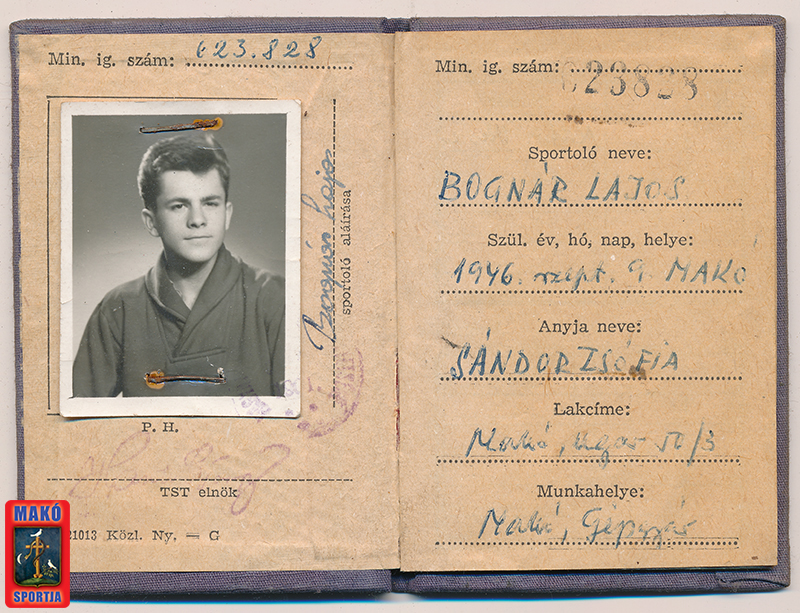 Min. ig. szám: 623.828
Bognár Lajos
sportoló aláírása
P. H.
TST elnök
21013 Közl. Ny. — G
MAKÓ
SPORTJA
Min. ig. szám: 623828
Sportoló neve:
BOGNÁR LAJOS
Szül. év, hó, nap, helye:
1946. szept. 9. MAKÓ
Anyja neve:
SÁNDOR ZSÓFIA
Lakcíme:
Makó, Ugar u /3
Munkahelye:
Makó, Gépgyár